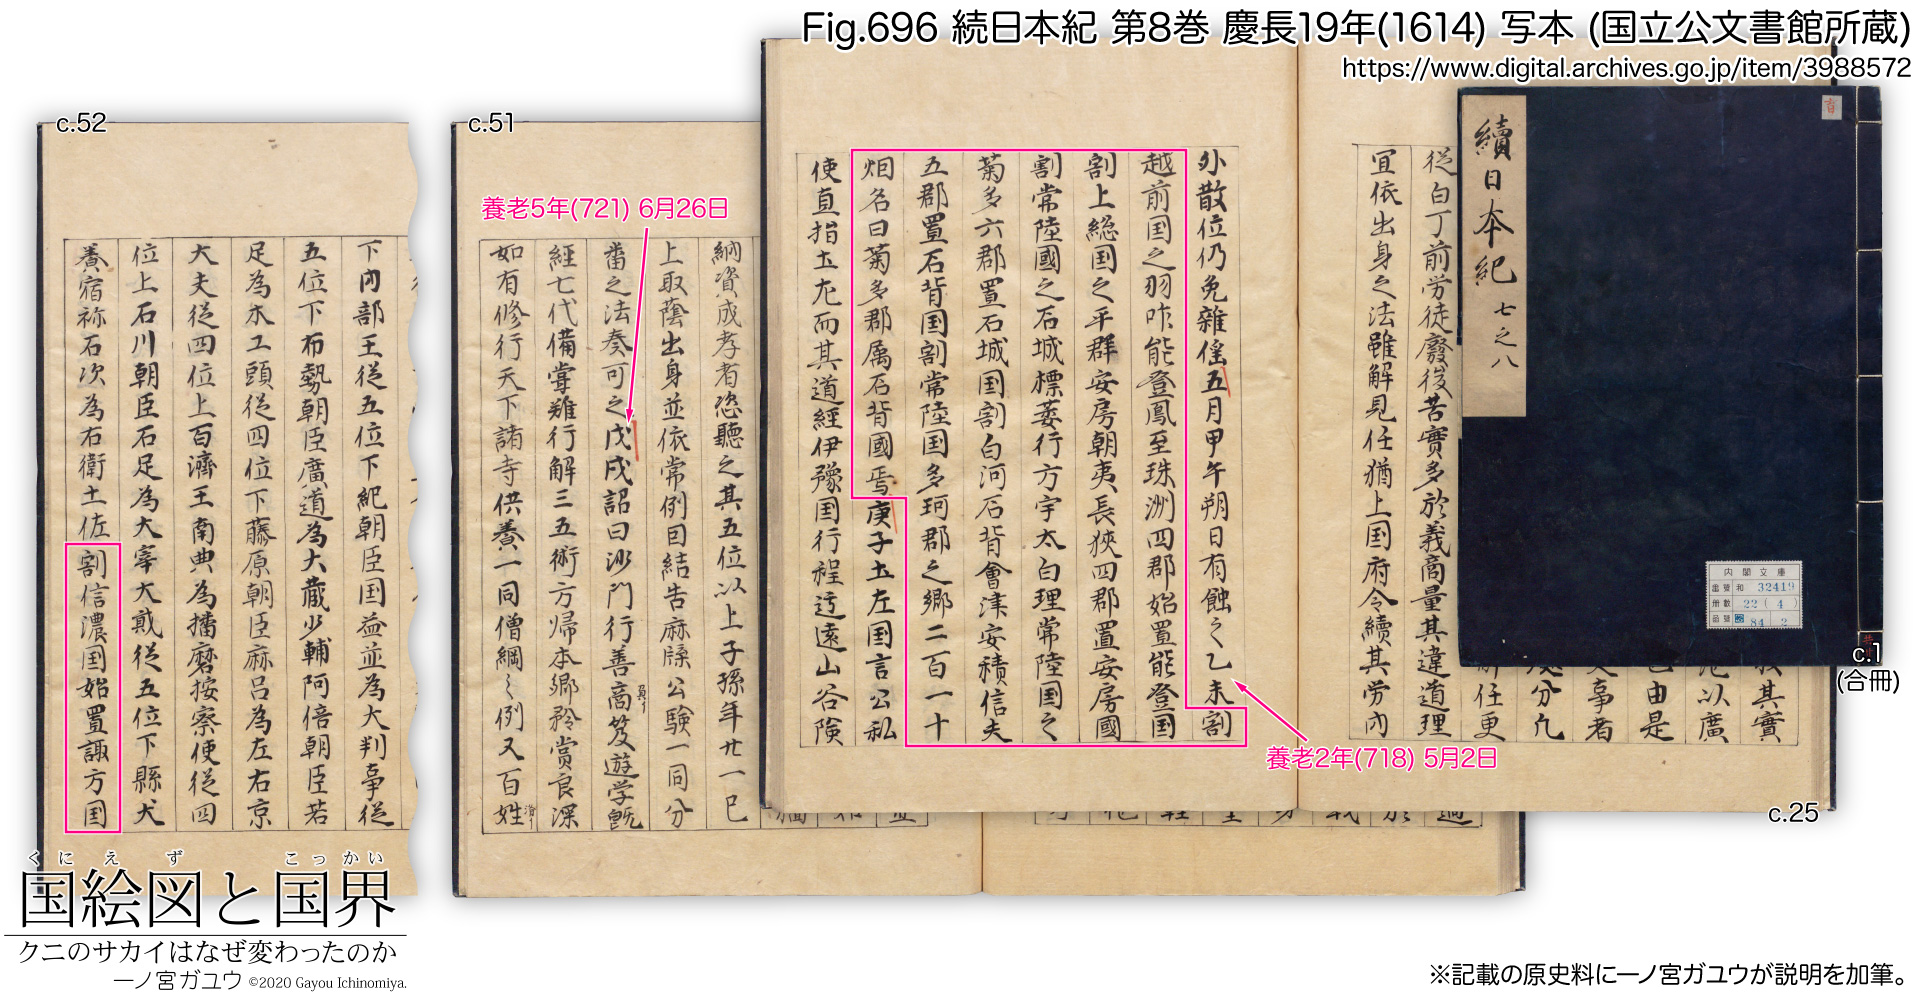 Fig.696 続日本紀 第8巻 慶長19年(1614) 写本 (国立公文書館所蔵)
https://www.digital.archives.go.jp/item/3988572
續日本紀 七之八
内閣文庫
番号 和 32419
冊数 22 (4)
函号 84 2
c.1
(合冊)
従白丁前労徒廢後苦實多於義商量其違道理
宜依出身之法雖解見任猶上国府令續其労内
外散位仍免雜徭五月甲午朔日有蝕之乙未割
越前国之羽咋能登鳳至珠洲四郡始置能登国
割上総国之平群安房朝夷長狹四郡置安房國
割常陸國之石城標葉行方宇太白理常陸国之
菊多六郡置石城国割白河石背會津安積信夫
五郡置石背国割常陸国多珂郡之郷二百一十
烟名曰菊多郡属石背國焉庚子土左国言公私
使直指土左而其道經伊豫国行程迂遠山谷険
養老2年(718) 5月2日
c.25
c.51
養老5年(721) 6月26日
納資成孝者恣聽之其五位以上子孫年廿一已
上取蔭出身並依常例因結告麻牒公驗一同分
番之法奏可之戊戌詔曰沙門行善商笈遊学既
經七代備嘗難行解三五術方帰本郷矜賞良深
如有修行天下諸寺供養一同僧綱之例又百姓
c.52
下内部王從五位下紀朝臣国益並為大判事從
五位下布勢朝臣廣道為大蔵少輔阿倍朝臣若
足為木工頭從四位下藤原朝臣麻呂為左右京
大夫從四位上百濟王南典為播磨按察使從四
位上石川朝臣石足為大宰大貮從五位下縣犬
養宿祢石次為右衛士佐割信濃国始置諏方国
くにえず こっかい
国絵図と国界
クニのサカイはなぜ変わったのか
一ノ宮ガユウ ©2020 Gayou Ichinomiya.
※記載の原史料に一ノ宮ガユウが説明を加筆。